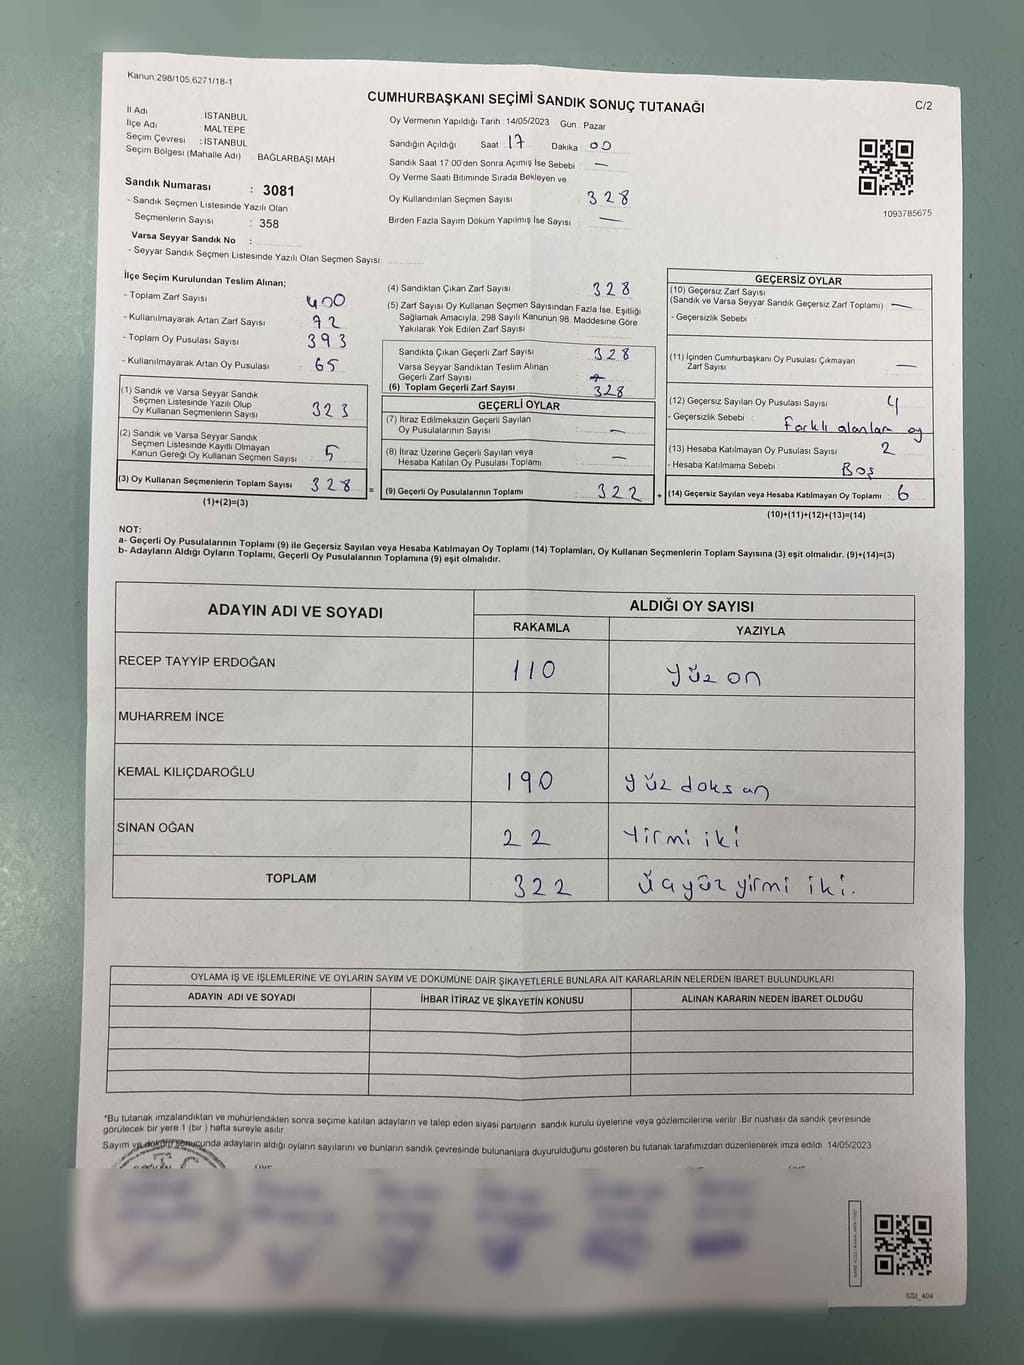 Kanun,298/105,6271/18-1
C/2
CUMHURBAŞKANI SEÇİMİ SANDIK SONUÇ TUTANAĞI
İl Adı : İSTANBUL
İlçe Adı : MALTEPE
Seçim Çevresi : İSTANBUL
Seçim Bölgesi (Mahalle Adı) : BAĞLARBAŞI MAH
Sandık Numarası : 3081
- Sandık Seçmen Listesinde Yazılı Olan
Seçmenlerin Sayısı : 358
Varsa Seyyar Sandık No :
- Seyyar Sandık Seçmen Listesinde Yazılı Olan Seçmen Sayısı:
Oy Vermenin Yapıldığı Tarih : 14/05/2023 Gün : Pazar
Sandığın Açıldığı Saat : 17 Dakika : 00
Sandık Saat 17:00'den Sonra Açımış İse Sebebi : —
Oy Verme Saati Bitiminde Sırada Bekleyen ve
Oy Kullandırılan Seçmen Sayısı : 328
Birden Fazla Sayım Döküm Yapılmış İse Sayısı : —
1093785675
İlçe Seçim Kurulundan Teslim Alınan;
- Toplam Zarf Sayısı : 400
- Kullanılmayarak Artan Zarf Sayısı : 92
- Toplam Oy Pusulası Sayısı : 393
- Kullanılmayarak Artan Oy Pusulası : 65
(1) Sandık ve Varsa Seyyar Sandık
Seçmen Listesinde Yazılı Olup
Oy Kullanan Seçmenlerin Sayısı : 323
(2) Sandık ve Varsa Seyyar Sandık
Seçmen Listesinde Kayıtlı Olmayan
Kanun Gereği Oy Kullanan Seçmen Sayısı : 5
(3) Oy Kullanan Seçmenlerin Toplam Sayısı : 328
(1)+(2)=(3)
(4) Sandıktan Çıkan Zarf Sayısı : 328
(5) Zarf Sayısı Oy Kullanan Seçmen Sayısından Fazla İse, Eşitliği
Sağlamak Amacıyla, 298 Sayılı Kanunun 98. Maddesine Göre
Yakılarak Yok Edilen Zarf Sayısı :
Sandıkta Çıkan Geçerli Zarf Sayısı : 328
Varsa Seyyar Sandıktan Teslim Alınan
Geçerli Zarf Sayısı :
(6) Toplam Geçerli Zarf Sayısı : 328
=
GEÇERLİ OYLAR
(7) İtiraz Edilmeksizin Geçerli Sayılan
Oy Pusulalarının Sayısı : —
(8) İtiraz Üzerine Geçerli Sayılan veya
Hesaba Katılan Oy Pusulası Toplamı : —
(9) Geçerli Oy Pusulalarının Toplamı : 322
+
GEÇERSİZ OYLAR
(10) Geçersiz Zarf Sayısı
(Sandık ve Varsa Seyyar Sandık Geçersiz Zarf Toplamı) : —
- Geçersizlik Sebebi :
(11) İçinden Cumhurbaşkanı Oy Pusulası Çıkmayan
Zarf Sayısı : —
(12) Geçersiz Sayılan Oy Pusulası Sayısı : 4
- Geçersizlik Sebebi : Farklı alanlar oy
(13) Hesaba Katılmayan Oy Pusulası Sayısı : 2
- Hesaba Katılmama Sebebi : Boş
(14) Geçersiz Sayılan veya Hesaba Katılmayan Oy Toplamı : 6
(10)+(11)+(12)+(13)=(14)
NOT:
a- Geçerli Oy Pusulalarının Toplamı (9) ile Geçersiz Sayılan veya Hesaba Katılmayan Oy Toplamı (14) Toplamları, Oy Kullanan Seçmenlerin Toplam Sayısına (3) eşit olmalıdır. (9)+(14)=(3)
b- Adayların Aldığı Oyların Toplamı, Geçerli Oy Pusulalarının Toplamına (9) eşit olmalıdır.
ADAYIN ADI VE SOYADI
ALDIĞI OY SAYISI
RAKAMLA YAZIYLA
RECEP TAYYİP ERDOĞAN 110 yüz on
MUHARREM İNCE
KEMAL KILIÇDAROĞLU 190 yüz doksan
SİNAN OĞAN 22 Yirmi iki
TOPLAM 322 üçyüz yirmi iki.
OYLAMA İŞ VE İŞLEMLERİNE VE OYLARIN SAYIM VE DÖKÜMÜNE DAİR ŞİKAYETLERLE BUNLARA AİT KARARLARIN NELERDEN İBARET BULUNDUKLARI
ADAYIN ADI VE SOYADI İHBAR İTİRAZ VE ŞİKAYETİN KONUSU ALINAN KARARIN NEDEN İBARET OLDUĞU
*Bu tutanak imzalandıktan ve mühürlendikten sonra seçime katılan adayların ve talep eden siyasi partilerin sandık kurulu üyelerine veya gözlemcilerine verilir. Bir nüshası da sandık çevresinde
görülecek bir yere 1 (bir ) hafta süreyle asılır.
Sayım ve dökümü sonucunda adayların aldığı oyların sayılarını ve bunların sandık çevresinde bulunanlara duyurulduğunu gösteren bu tutanak tarafımızdan düzenlenerek imza edildi. 14/05/2023
SSI_404